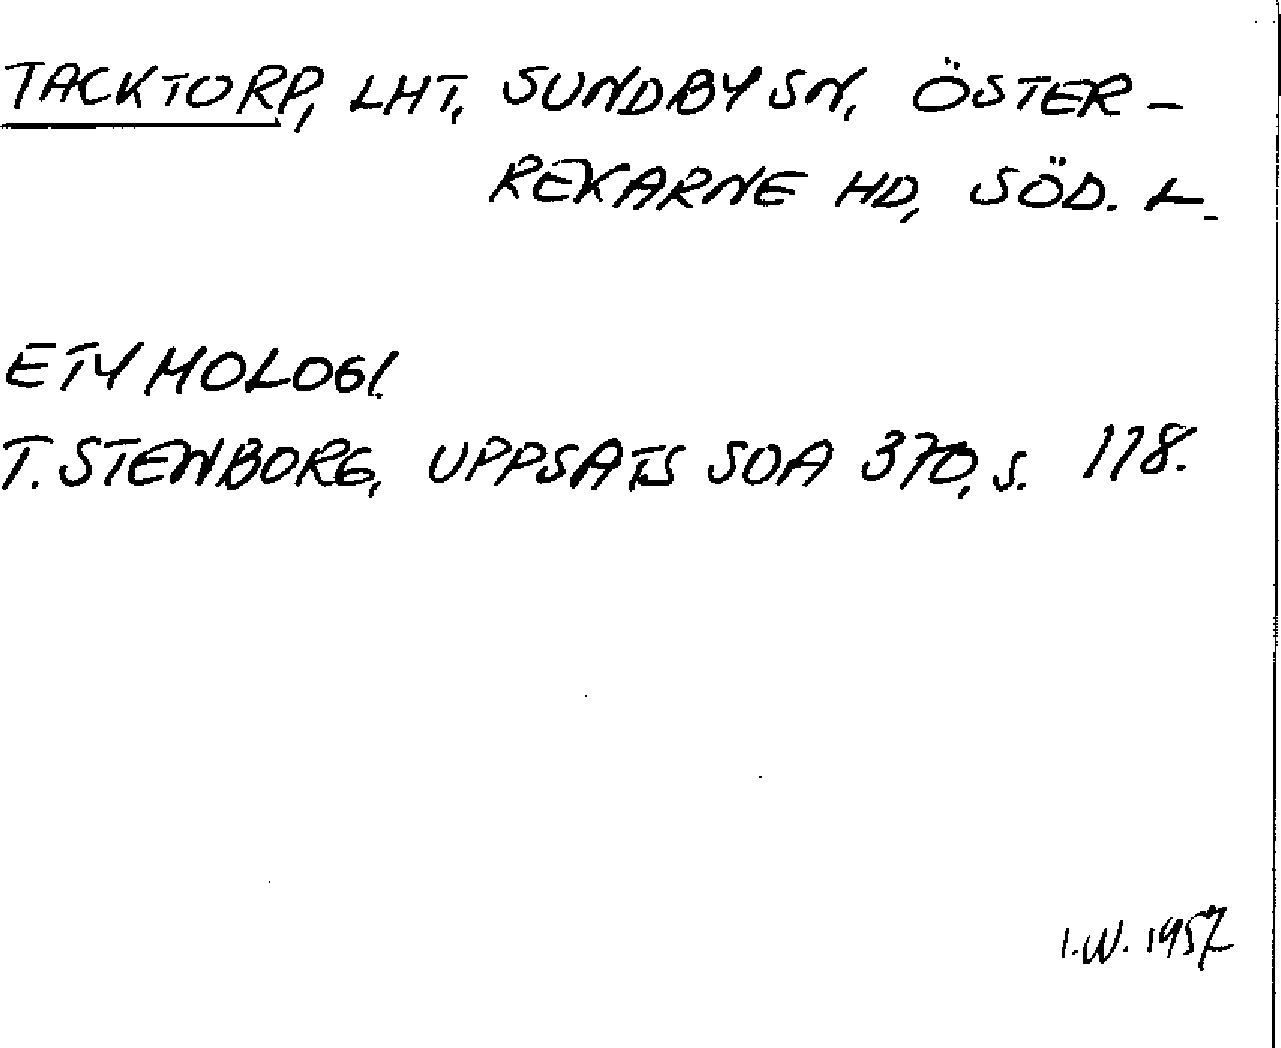 TACKTORP, LHT, SUNDBY SN, ÖSTER-
REKARNE HD, SÖD. L.
ETYMOLOGI.
T. STENBORG, UPPSATS SOA 370, S. 118.
I.W. 1957